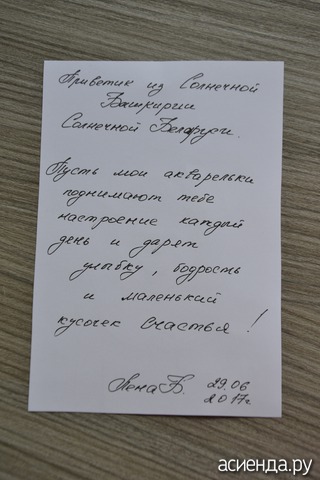 Приветик из Солнечной
Башкирии
Солнечной Беларуси.
Пусть мои акварельки
поднимают тебе
настроение каждый
день и дарят
улыбку, бодрость
и маленький
кусочек Счастья!
Лена Б. 29.06
2017г.
асиенда.ру